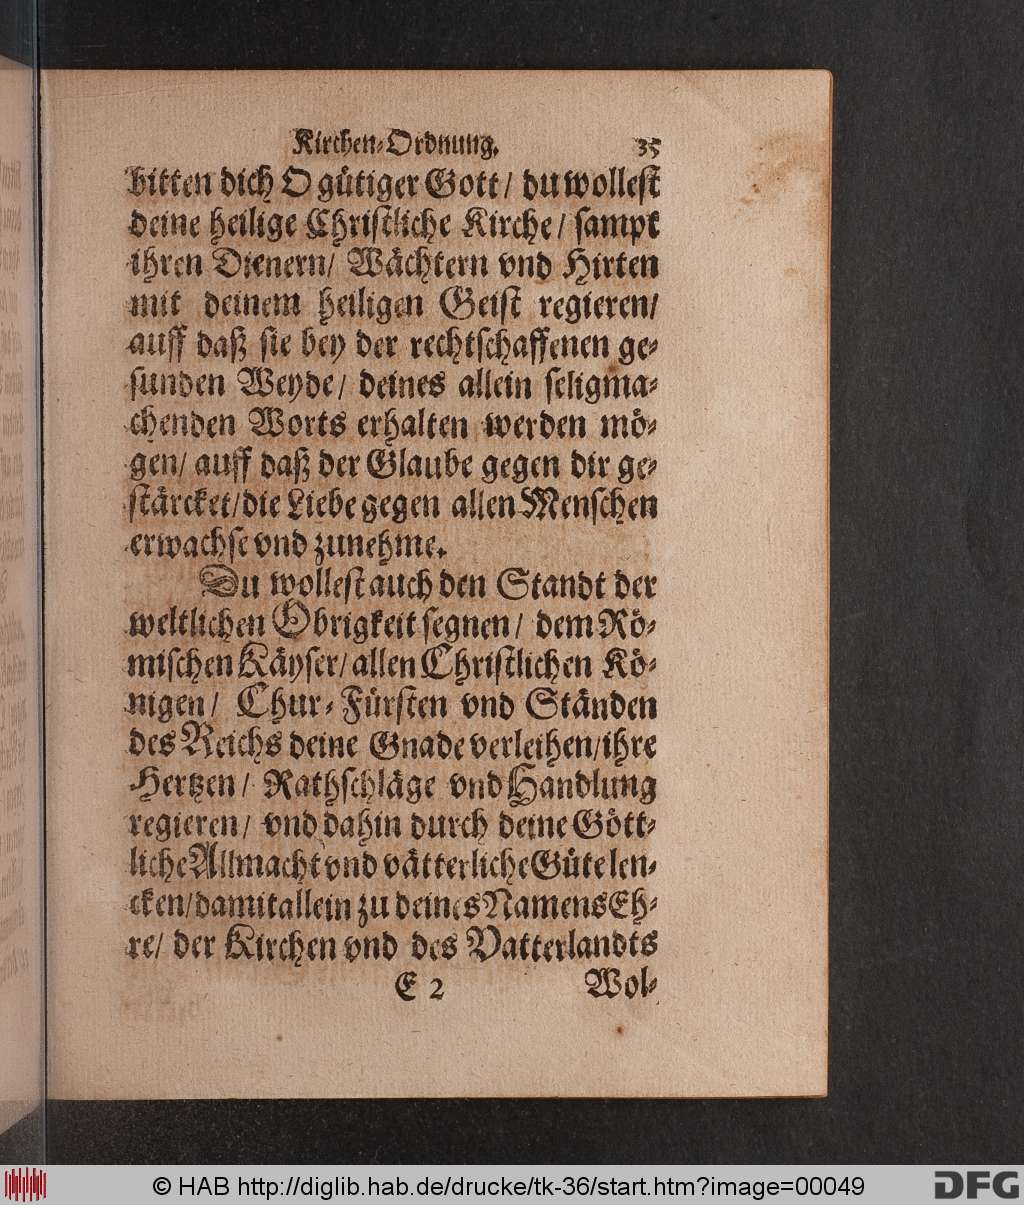 Kirchen-Ordnung. 35
bitten dich O gütiger Gott / du wollest
deine heilige Christliche Kirche / sampt
ihren Dienern / Wächtern vnd Hirten
mit deinem heiligen Geist regieren /
auff daß sie bey der rechtschaffenen ge-
sunden Weyde / deines allein seligma-
chenden Worts erhalten werden mö-
gen / auff daß der Glaube gegen dir ge-
stärcket / die Liebe gegen allen Menschen
erwachse vnd zunehme.
Du wollest auch den Standt der
weltlichen Obrigkeit segnen / dem Rö-
mischen Käyser / allen Christlichen Kö-
nigen / Chur-Fürsten vnd Ständen
des Reichs deine Gnade verleihen / ihre
Hertzen / Rathschläge vnd Handlung
regieren / vnd dahin durch deine Gött-
liche Allmacht vnd vätterliche Güte len-
cken / damit allein zu deines Namens Eh-
re / der Kirchen vnd des Vatterlandts
E 2 Wol-
© HAB http://diglib.hab.de/drucke/tk-36/start.htm?image=00049
DFG